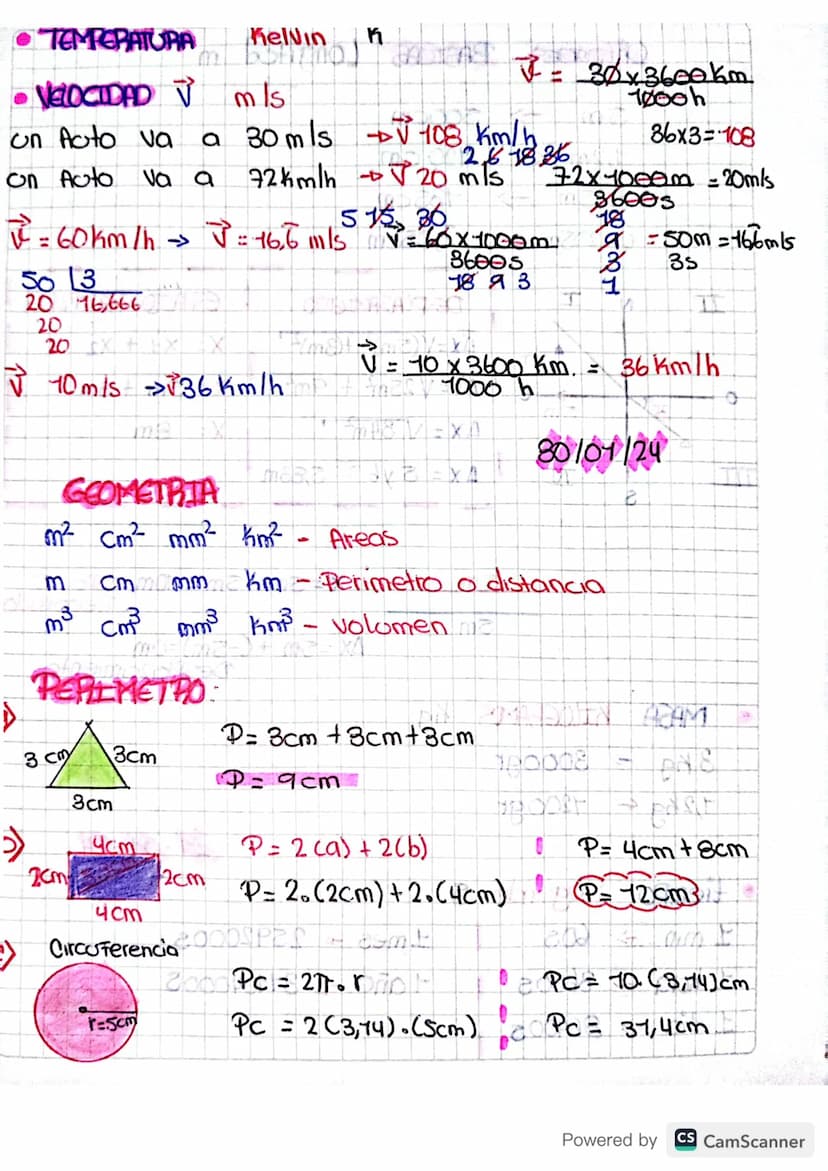 • TEMPERATURA Kelvin K
• VELOCIDAD V⃗ m/s
V⃗ = 30x3600Km / 1000h
un Auto va a 30m/s → V⃗ 108 Km/h 36x3=108
un Auto va a 72Km/h → V⃗ 20 m/s 72x1000m / 3600s = 20m/s
2 6 18 36
18
9
3
1
V⃗ = 60Km/h → V⃗ = 16,6 m/s V = 60x1000m / 3600s = 50m / 3s = 166m/s
5 15 30
18 9 3
50 | 3
20 16,666
20
20
V⃗ 10m/s → V⃗ 36 Km/h V⃗ = 10 x 3600 Km. / 1000 h = 36Km/h
30/01/24
GEOMETRIA
m² cm² mm² Km² - Areas
m cm mm Km - Perimetro o distancia
m³ cm³ mm³ Km³ - volumen
PERIMETRO:
3 cm 3cm P= 3cm +3cm+3cm
3cm P= 9cm
4cm P= 2(a) + 2(b) P= 4cm+8cm
2cm 2cm P= 2.(2cm)+2.(4cm) P= 12cm
4cm
Circuferencia
Pc = 2π.r Pc = 10.(3,14)cm
r=5cm Pc = 2(3,14).(5cm) Pc = 31,4cm
Powered by CS CamScanner